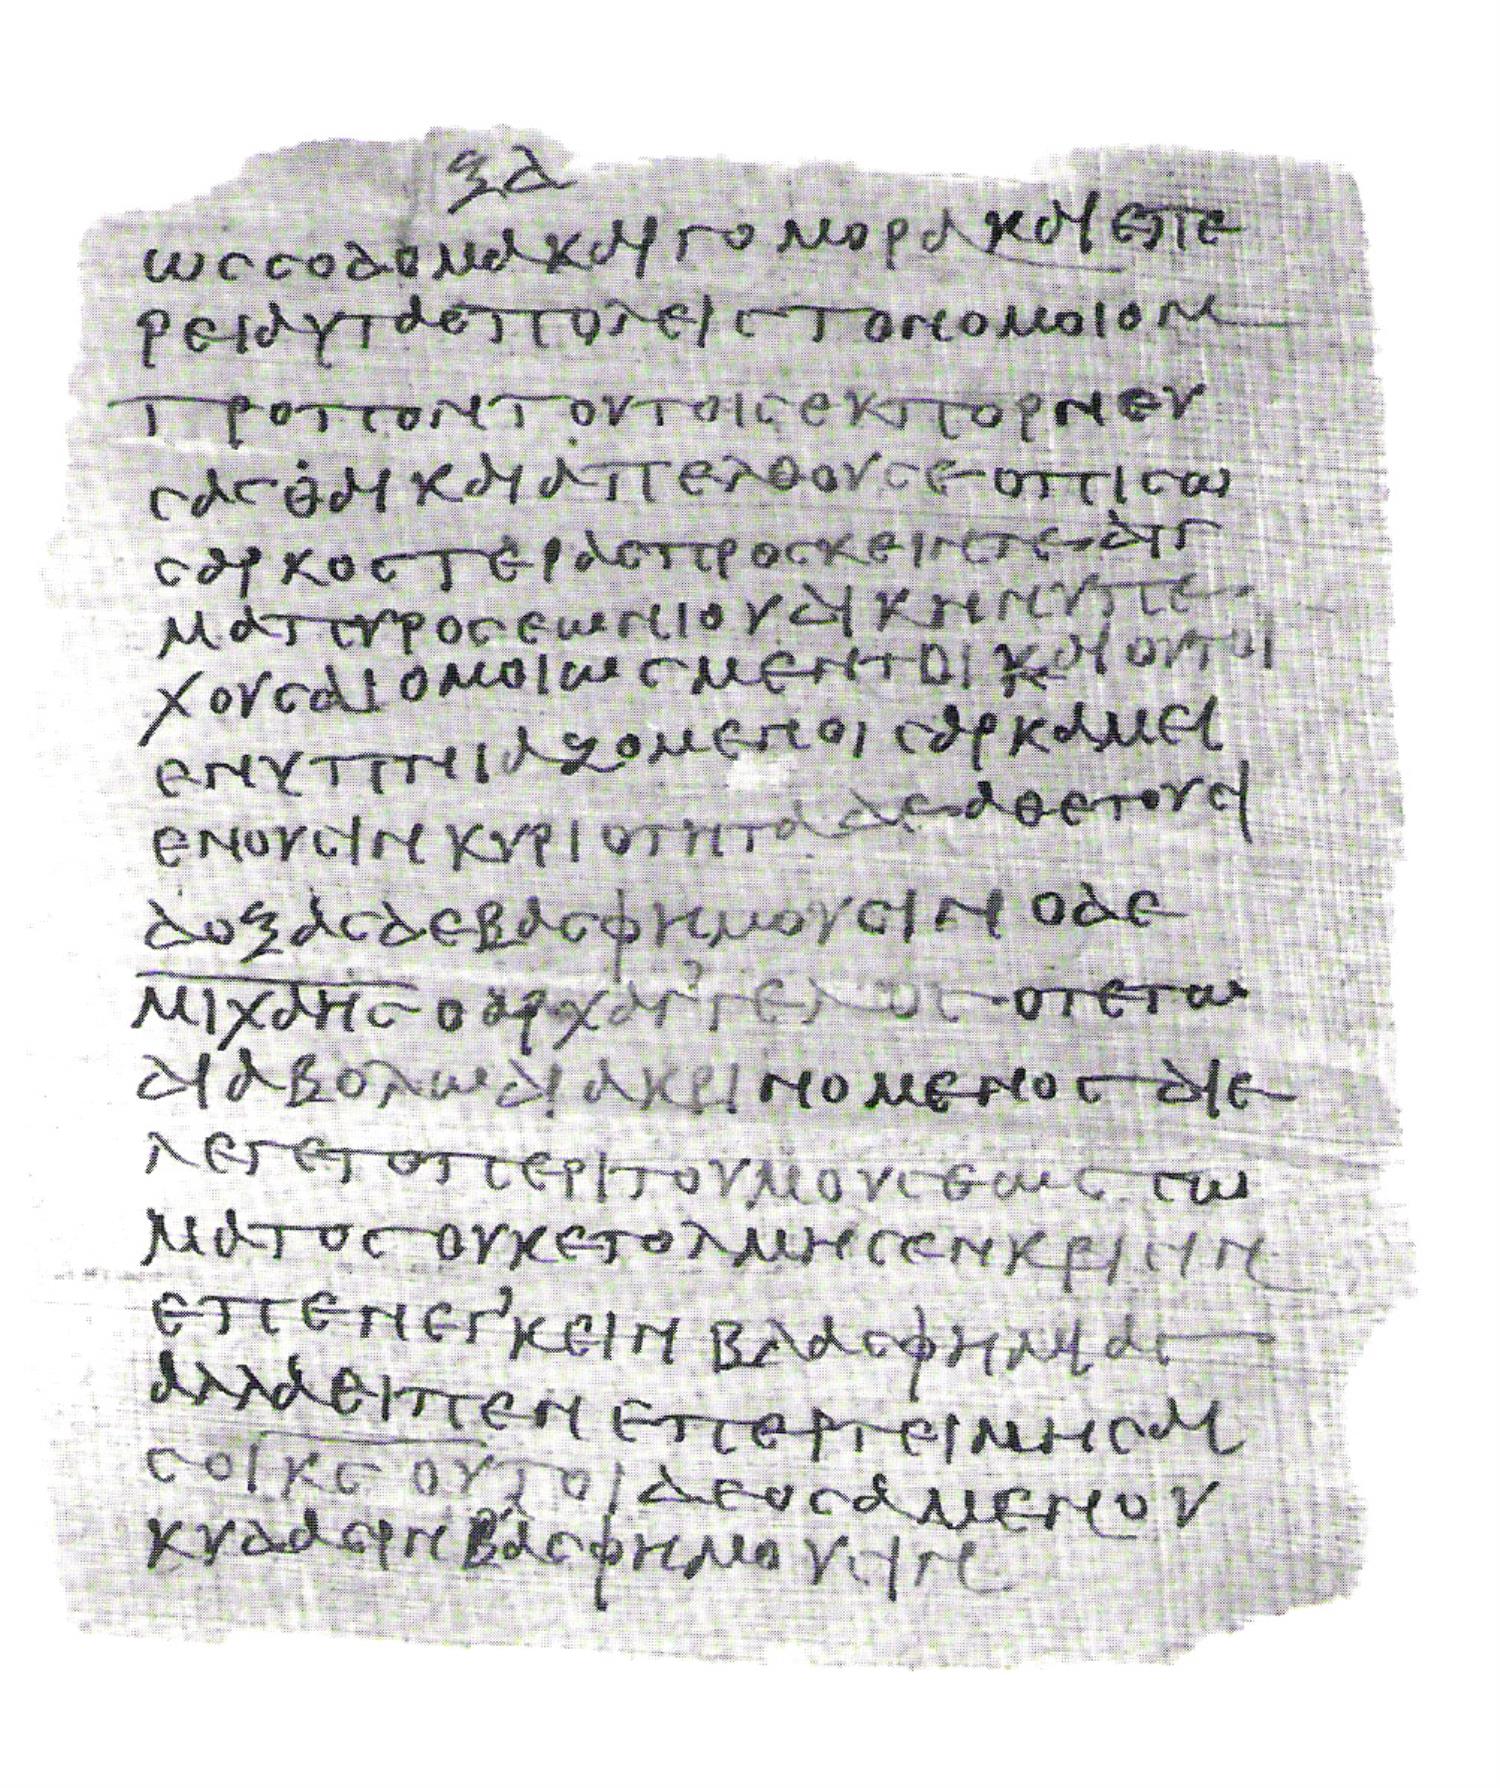 ξδ
ωσσοδομακαιγομορακαιεπε
ρειαυταςπολειστονομοιον
τροποντουτοισεκπορνευ
σασθαικαιαπελθουσεοπισω
σαρκοστεραςπροσκειντεδιγ
μαπυροσεωνιουδικηνυπε
χουσαιομοιωσμεντοικαιουτοι
ενυπνιαζομενοισαρκαμει
ενουσινκυριοτηταδεαθετουσι
δοξασδεβασφημουσινοδε
μιχαησοαρχαγ'γελοςοτετω
διαβολωδιακρινομενοσδιε
λεγετοπεριτουμουσεωσσω
ματοσουκετολμησενκρισιν
επενεγ'κεινβλασφημιας
αλλαειπενεπεργειμησαι
σοικςουτοιδεοσαμενου
κυδασηνβλασφημουσιν